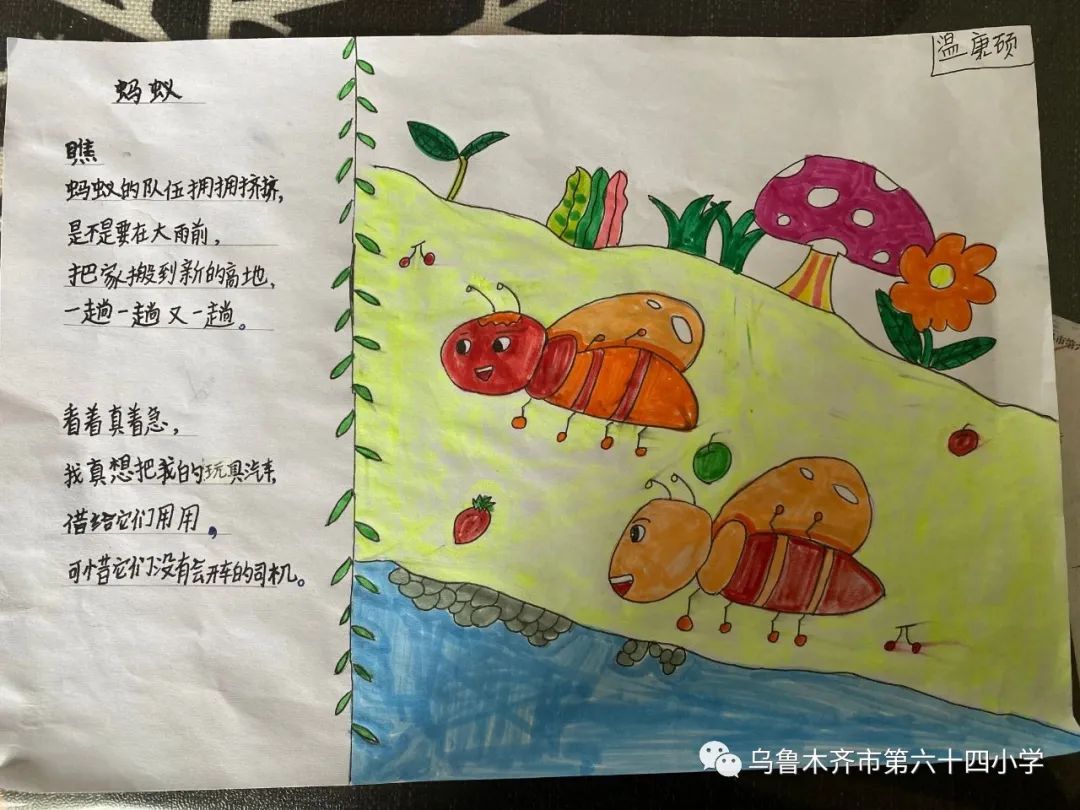 蚂蚁
瞧
蚂蚁的队伍拥拥挤挤,
是不是要在大雨前,
把家搬到新的高地,
一趟一趟又一趟。
看着真着急,
我真想把我的玩具汽车,
借给它们用用,
可惜它们没有会开车的司机。
温康硕
乌鲁木齐市第六十四小学